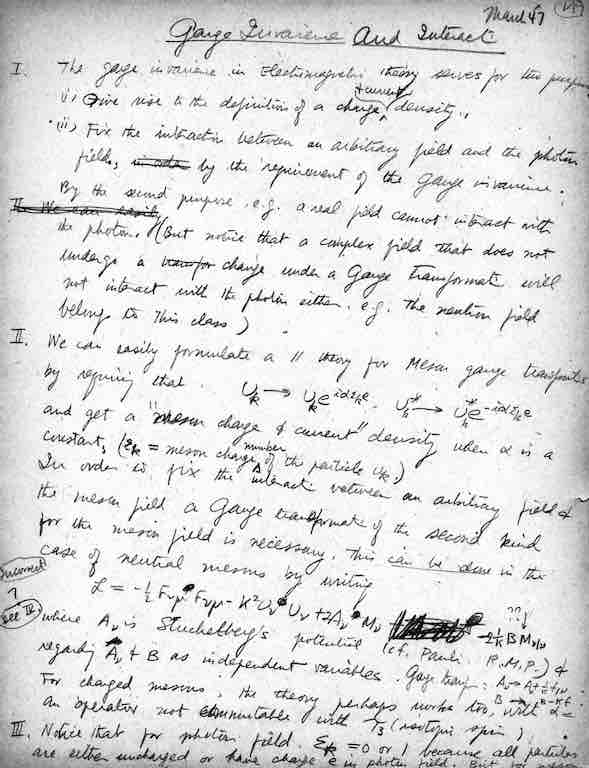 March 47
Gauge Invariance And Interact
I. The gauge invariance in Electromagnetic theory serves for two purposes
i) Give rise to the definition of a charge + current density.,
(ii) Fix the interaction between an arbitrary field and the photon
fields, by the requirement of the gauge invariance.
By the second purpose e.g. a real field cannot interact with
II. We can easily
the photon. (But notice that a complex field that does not
undergo a change under a Gauge transformat. will
not interact with the photon either. e.g. the neutron field
belongs to this class)
II. We can easily formulate a // theory for Meson gauge
by requiring that U_k → U_k e^{iαε_k e}, U_k^* → U_k^* e^{-iαε_k e}
and get a "meson charge & current" density when α is a
constant, (ε_k = meson charge number of the particle U_k.)
In order to fix the interact. between an arbitrary field &
the meson field a Gauge transformat. of the second kind
for the meson field is necessary. This can be done in the
case of neutral mesons by writing
Incorrect
↑
see IV.
L = -½ F_{νμ} F_{νμ} - K² U_ν U_ν + 2A_ν M_ν
??↓
where A_ν is potential (cf. Pauli R.M.P.) &
regarding A_ν + B as independent variables. Gauge
For charged mesons, the theory perhaps works too, with α =
an operator not commutable with T_3 (isotopic spin)
III. Notice that for photon field. ε_k = 0 or 1 because all particles
are either uncharged or have charge e in photon field. But